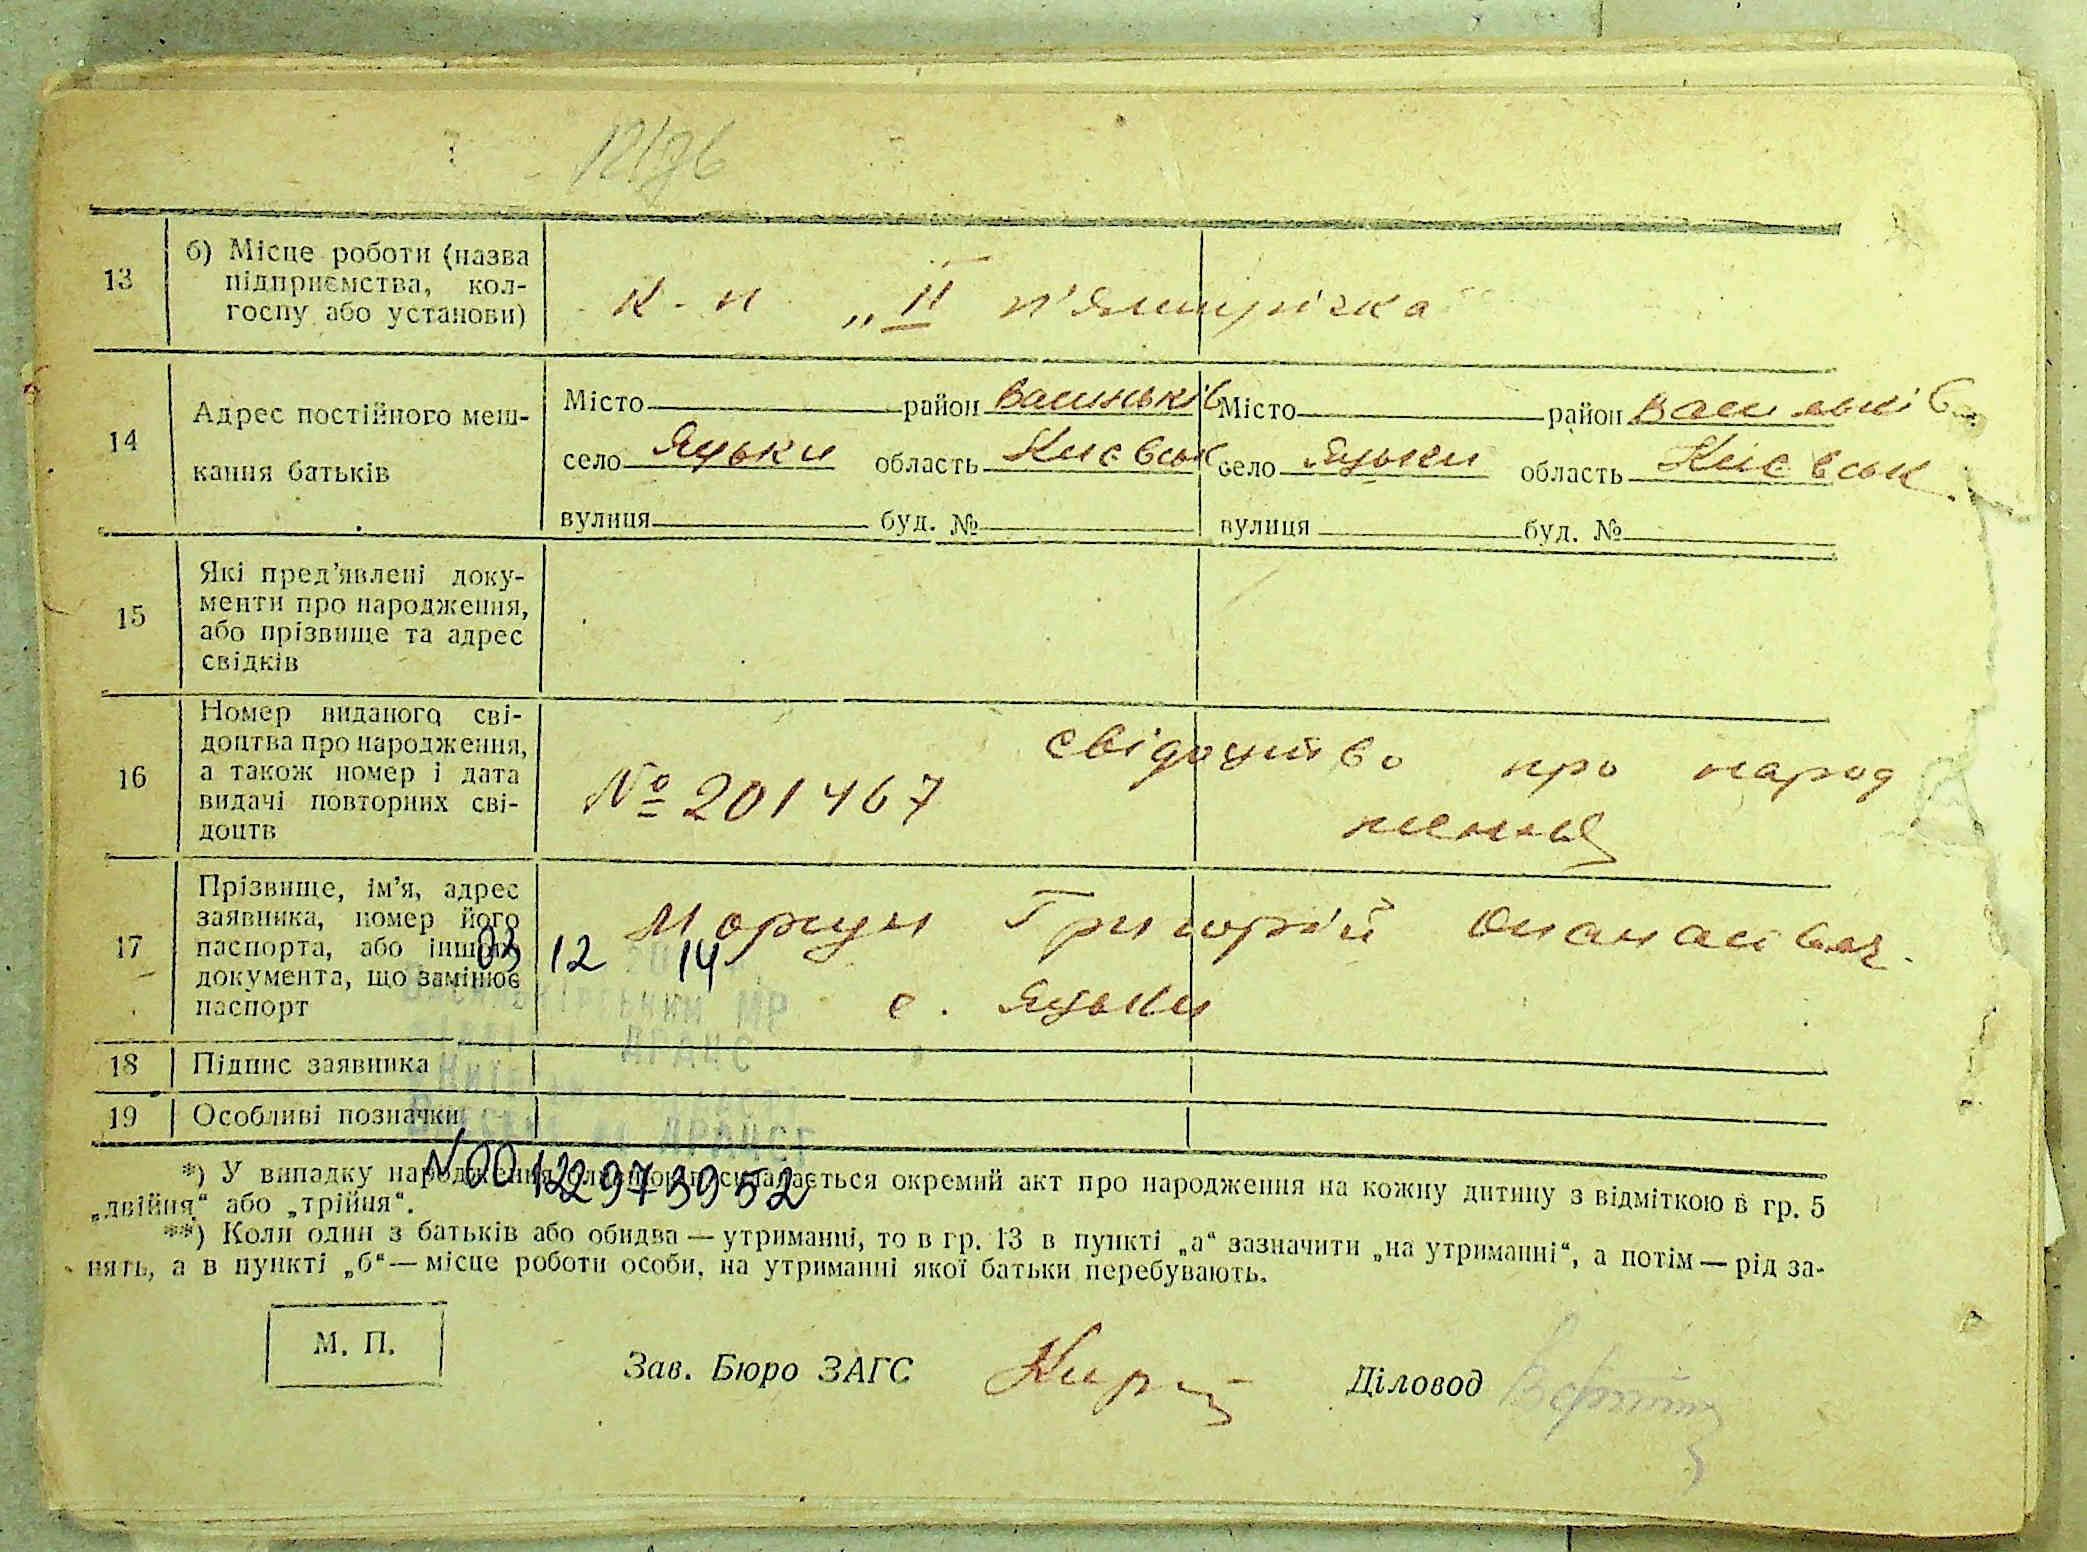 13
б) Місце роботи (назва
підприємства, кол-
госпу або установи)
к-п „II п'ятирічка"
14
Адрес постійного меш-
кання батьків
Місто район Васильків
село Яцьки область Києвськ
вулиця буд. №
Місто район Васильків
село Яцьки область Києвськ.
вулиця буд. №
15
Які пред'явлені доку-
менти про народження,
або прізвище та адрес
свідків
16
Номер виданого сві-
доцтва про народження,
а також номер і дата
видачі повторних сві-
доцтв
№ 201467
свідоцтво про народ
ження
17
Прізвище, ім'я, адрес
заявника, номер його
паспорта, або іншого
документа, що замінює
паспорт
Моргун Григорій Опанасович.
с. Яцьки
03 12 14
18
Підпис заявника
19
Особливі позначки
№00122973952
*) У випадку народження складається окремий акт про народження на кожну дитину з відміткою в гр. 5
„двійня“ або „трійня“.
**) Коли один з батьків або обидва — утриманці, то в гр. 13 в пункті „а“ зазначити „на утриманні“, а потім — рід за-
нять, а в пункті „б“ — місце роботи особи, на утриманні якої батьки перебувають.
М. П.
Зав. Бюро ЗАГС
Діловод